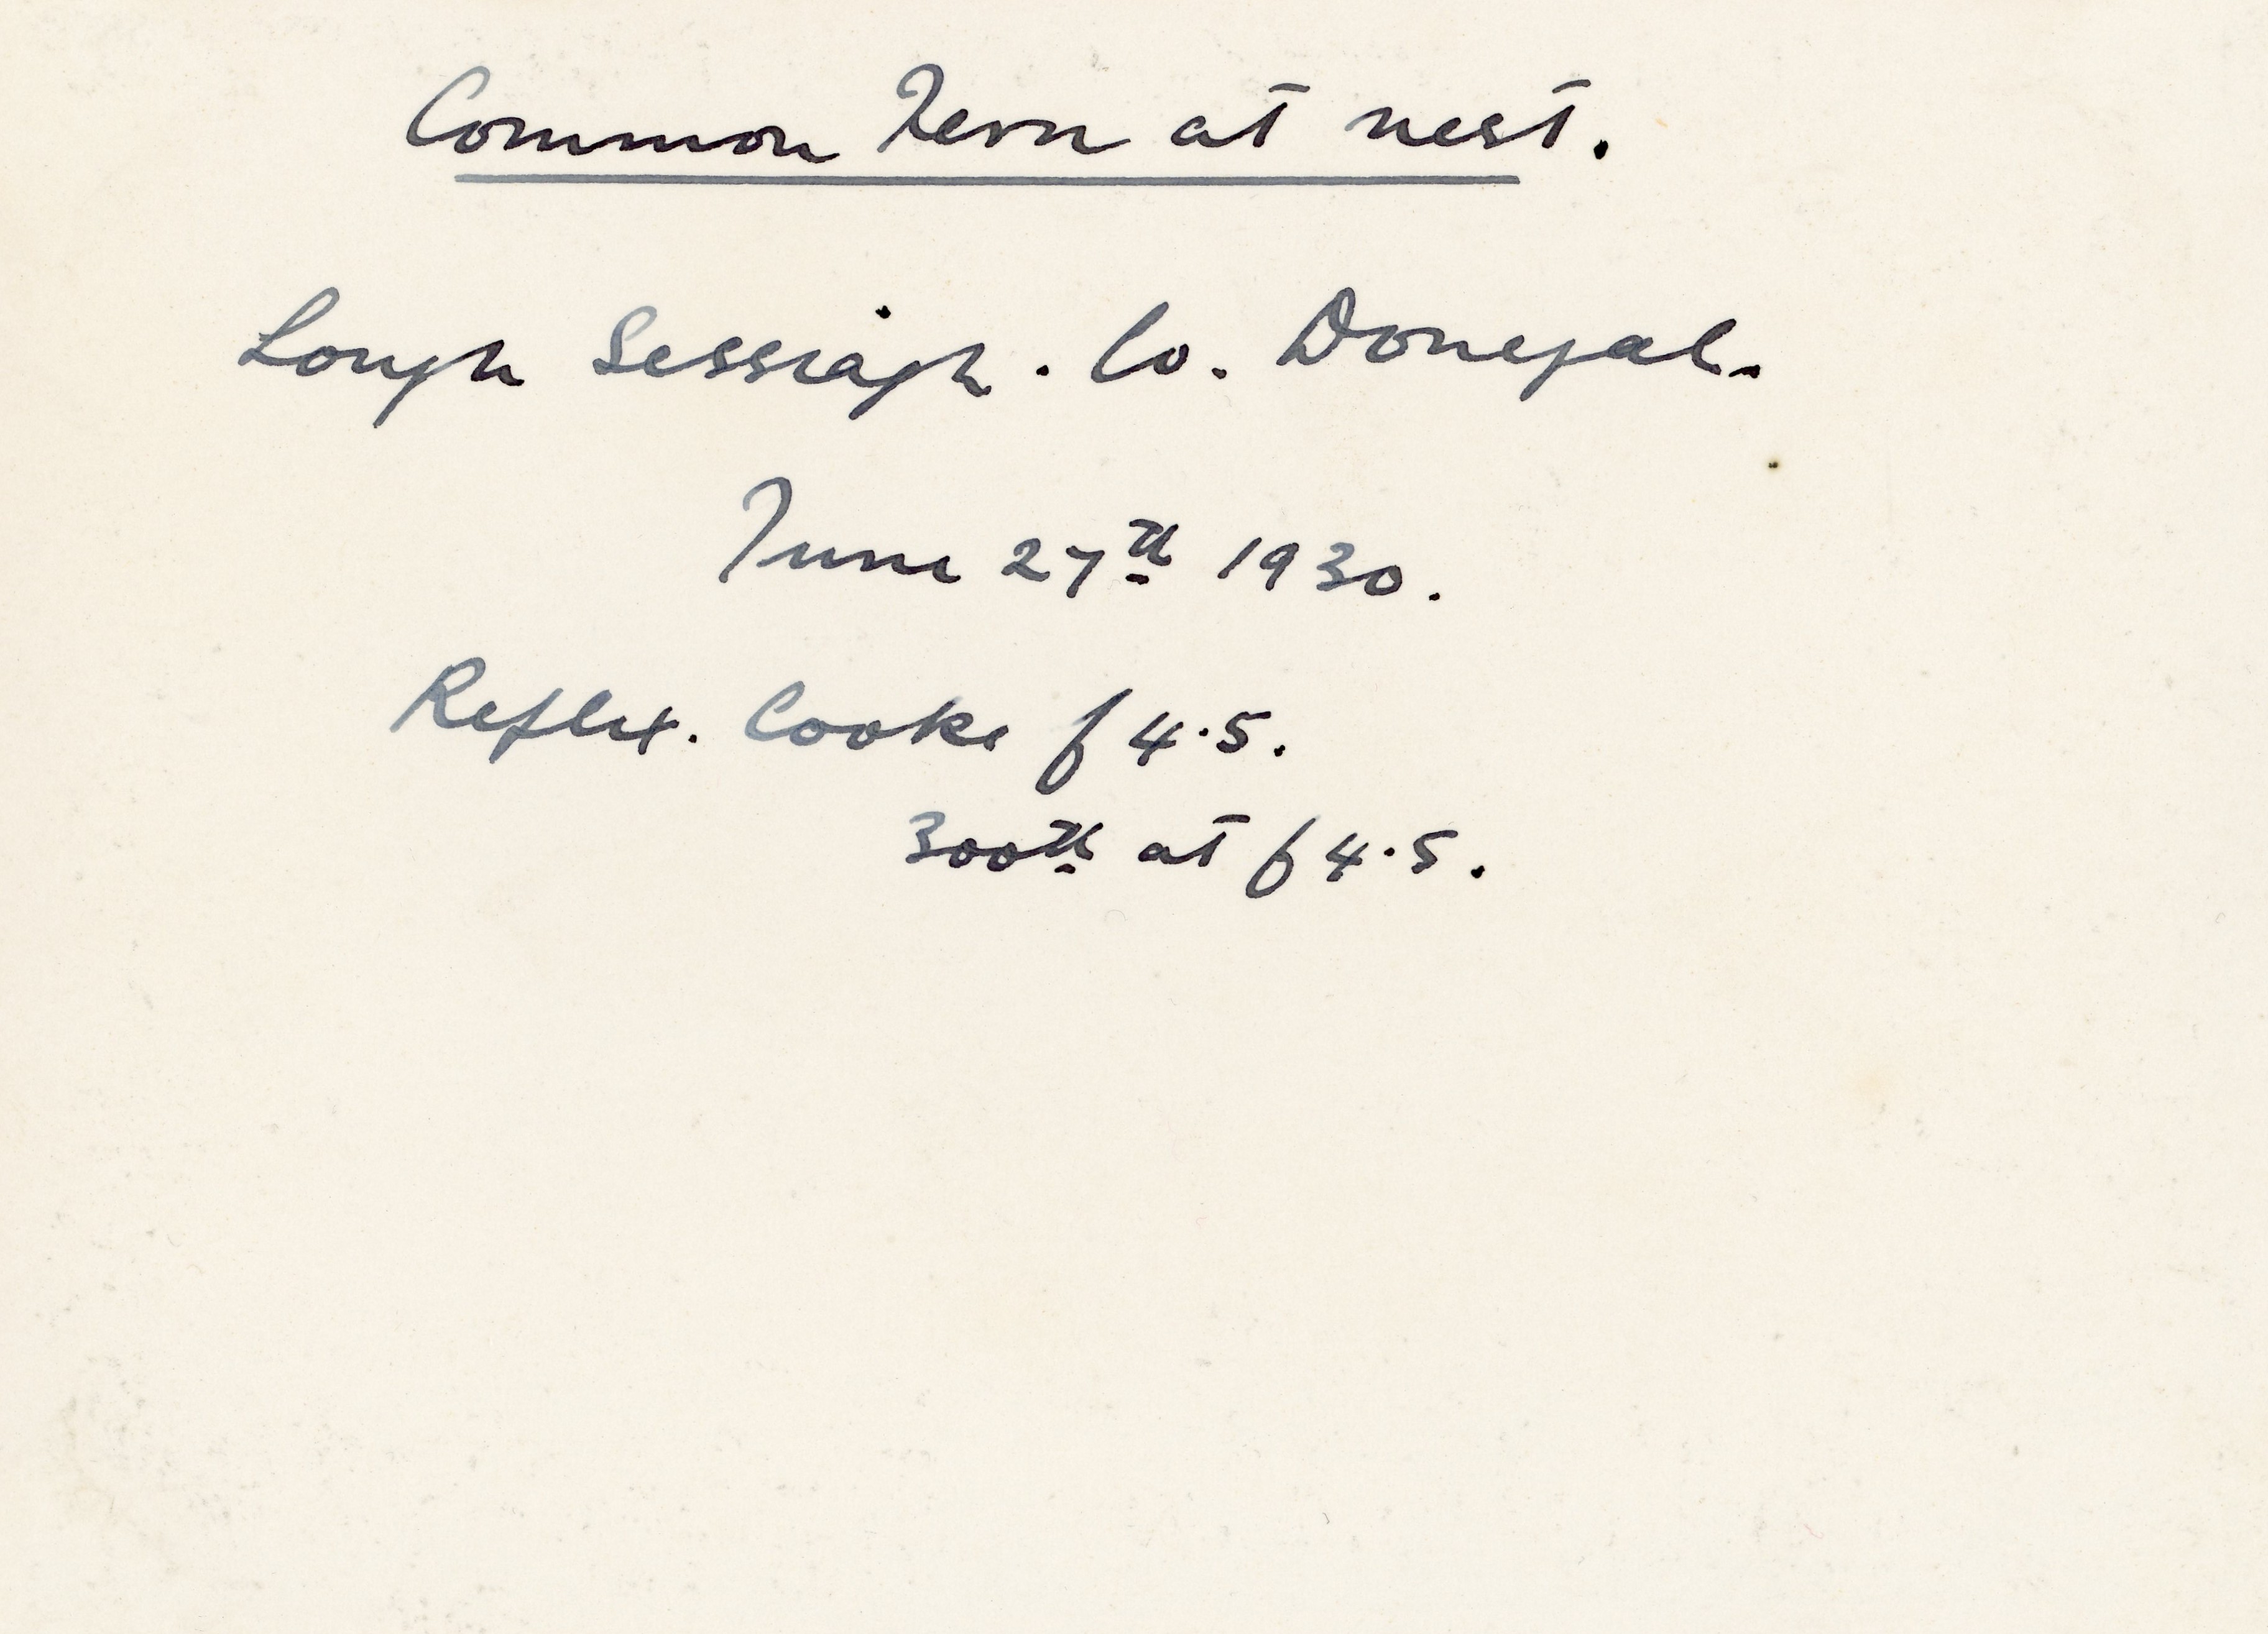 Common Tern at nest.
Lough Sessiagh. Co. Donegal.
June 27th 1930.
Reflex. Cooke f4.5.
300th at f4.5.